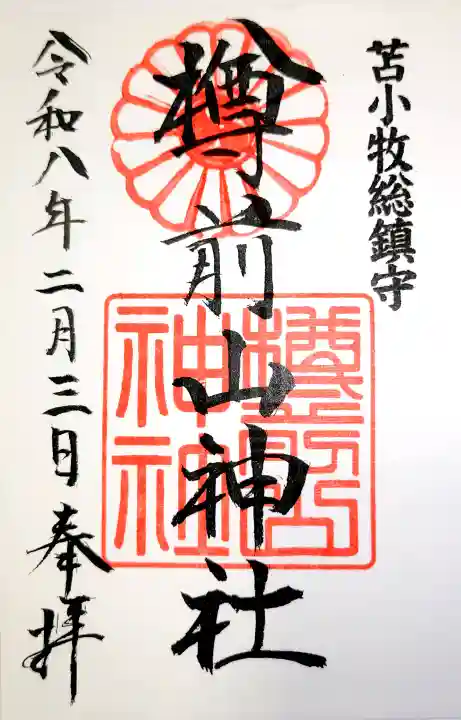 苫小牧総鎮守
樽前山神社
令和八年二月三日奉拝
樽前山
神社